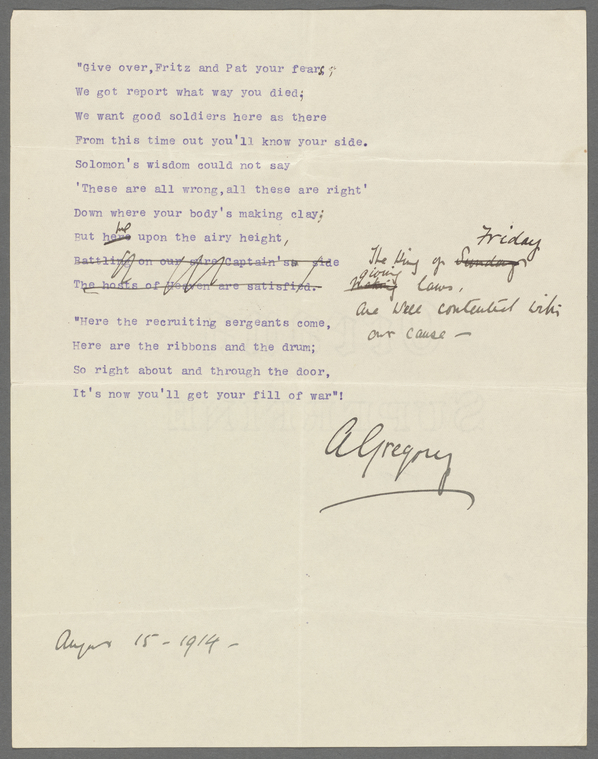 "Give over,Fritz and Pat your fears;
We got report what way you died;
We want good soldiers here as there
From this time out you'll know your side.
Solomon's wisdom could not say
'These are all wrong,all these are right'
Down where your body's making clay;
we
But here upon the airy height,
Battling on our Captain's side
The hosts of heaven are satisfied.
Friday
The King of Sunday
giving
making laws,
are well contented with
our cause —
"Here the recruiting sergeants come,
Here are the ribbons and the drum;
So right about and through the door,
It's now you'll get your fill of war"!
A Gregory
August 15 - 1914 -